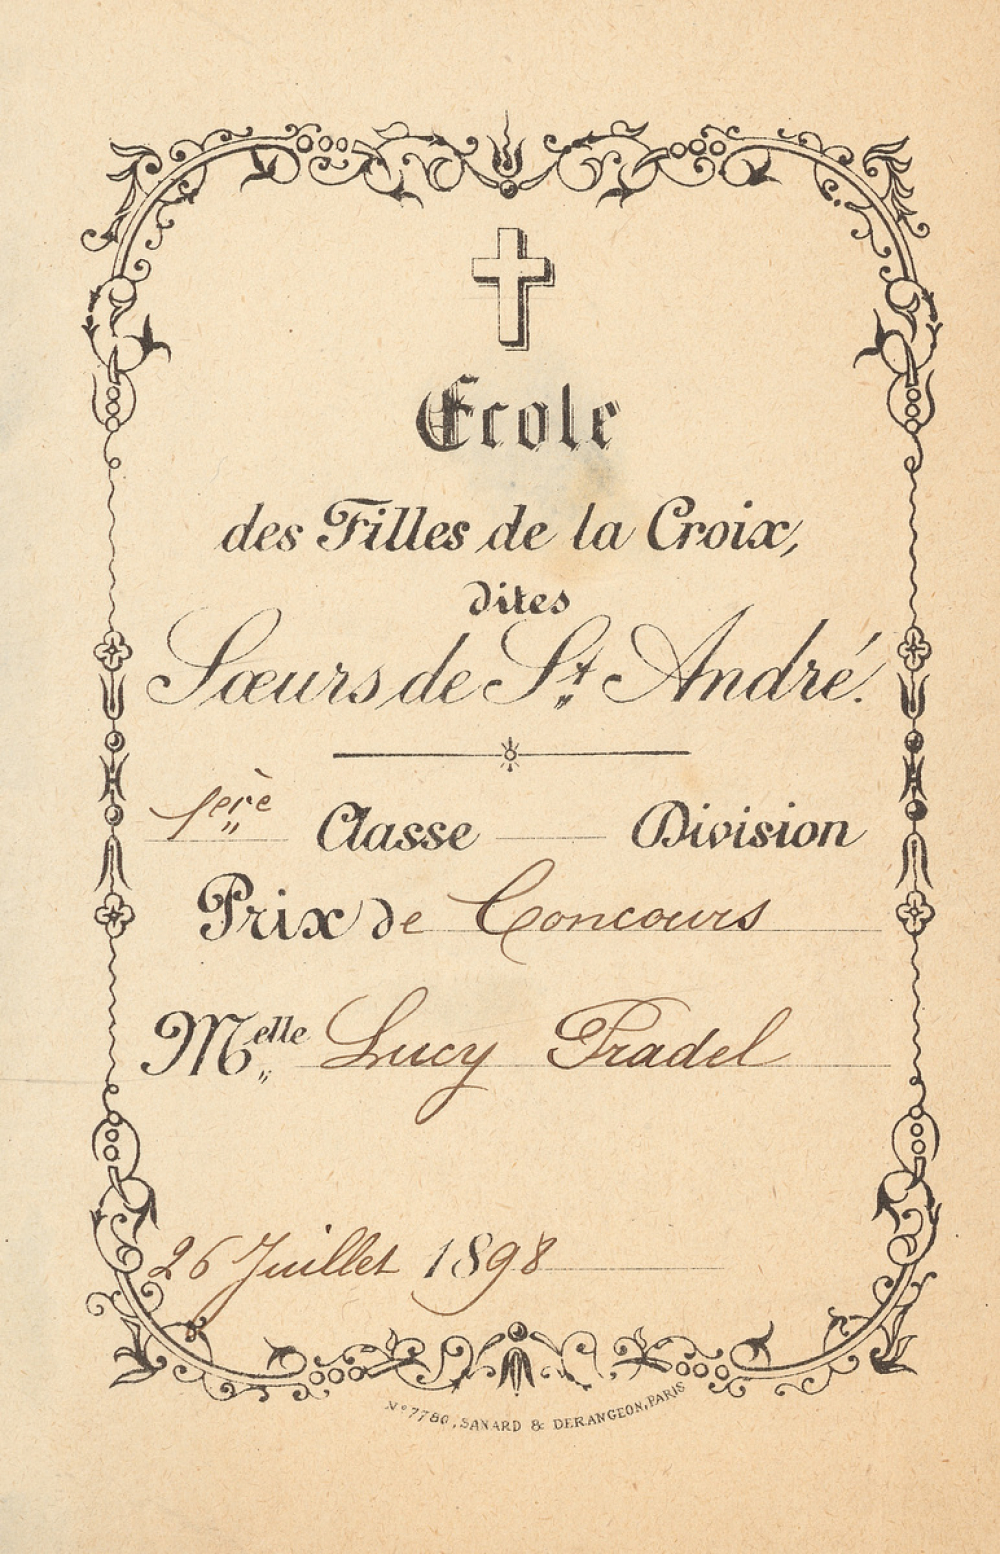 École
des Filles de la Croix,
dites
Sœurs de St. André.
1ère Classe Division
Prix de Concours
Melle Lucy Pradel
26 Juillet 1898
No 7780, SANARD & DERANGEON, PARIS